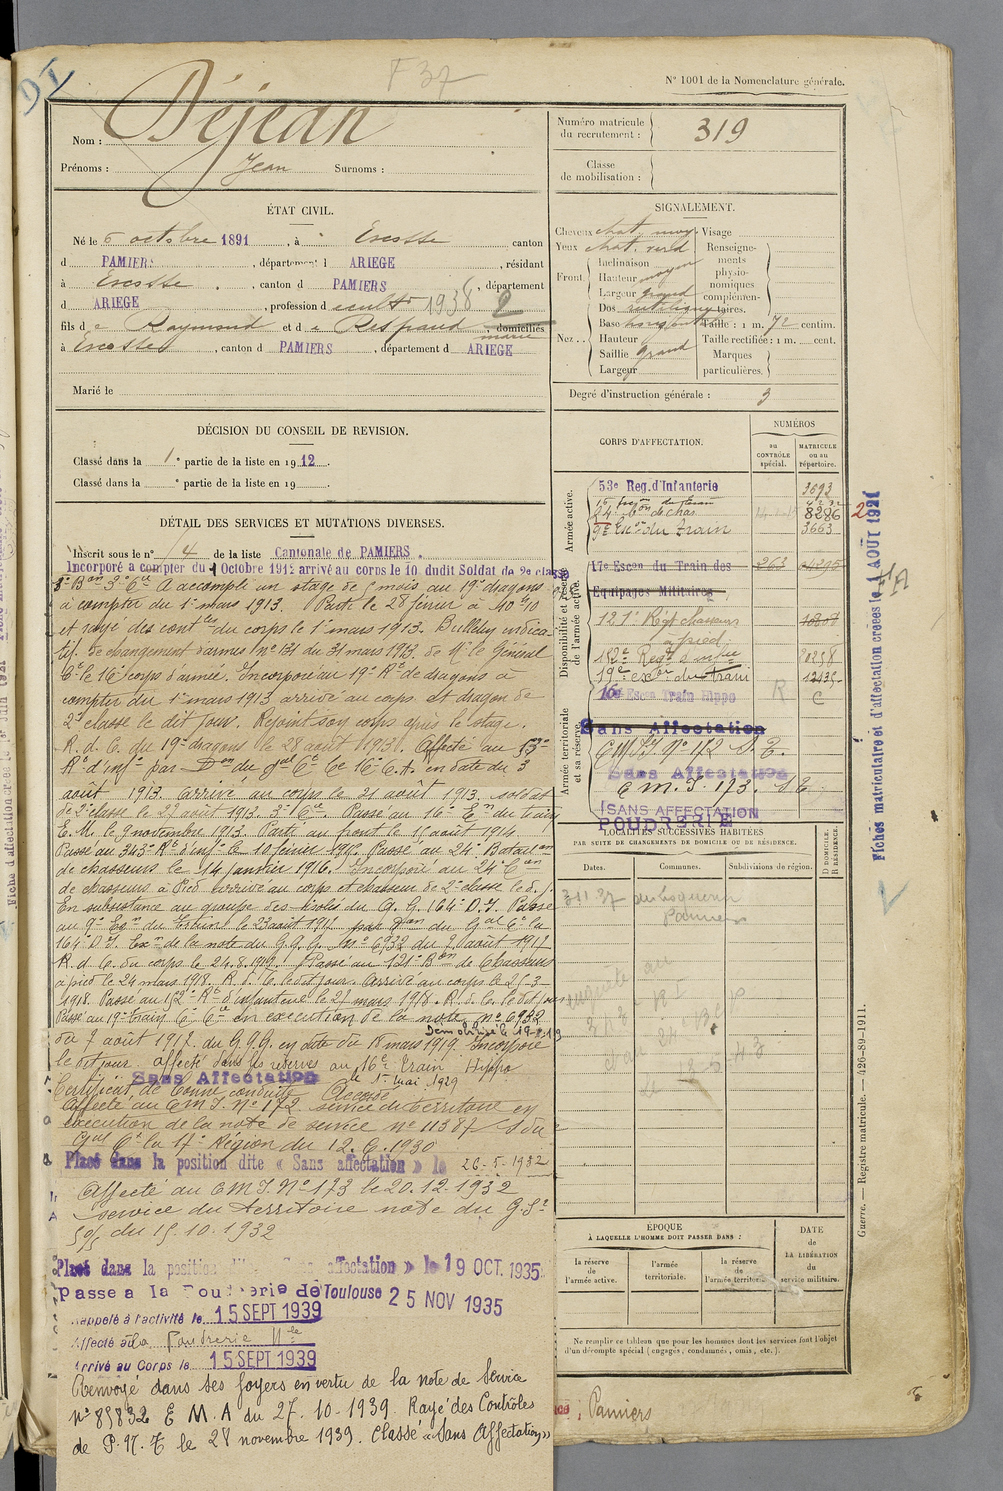 F 37
N° 1001 de la Nomenclature générale.
Nom : Déjean
Prénoms : Jean Surnoms :
ÉTAT CIVIL.
Né le 6 octobre 1891, à Escosse canton
d PAMIERS, département d ARIEGE, résidant
à Escosse, canton d PAMIERS, département
d ARIEGE, profession d cult 1938 2
fils de Raymond et de Respaud, domiciliés
à Escosse, canton d PAMIERS, département d ARIEGE
Marié le
DÉCISION DU CONSEIL DE REVISION.
Classé dans la 1e partie de la liste en 1912.
Classé dans la e partie de la liste en 19 .
DÉTAIL DES SERVICES ET MUTATIONS DIVERSES.
Inscrit sous le n° 14 de la liste Cantonale de PAMIERS.
Incorporé a compter du 1 Octobre 1912 arrivé au corps le 10 dudit Soldat de 2e classe
A accompli un stage de 5 mois au 19e dragons
à compter du 1er mars 1913. Parti le 28 février
et rayé des contles du corps le 1er mars 1913. Bulletin indica-
tif de changement d'armes N° 131 du 31 mars 1913 de Mr le Général
Ct le 16e corps d'armée. Incorporé au 19e Rt de dragons à
compter du 1er mars 1913 arrivé au corps et dragon de
2e classe le dit jour. Rejoint son corps après le stage.
R. d. C. du 19e dragons le 28 août 1913. Affecté au 53e
Rt d'infie par Don du gal Ct le 16e C.A. en date du 3
août 1913. arrivé au corps le 21 août 1913. soldat
de 2e classe le 22 août 1913. 3e Cie. Passé au 16e Em du train
E. M. le 9 novembre 1913. Parti au front le 15 août 1914.
Passé au 343e Rt d'infie le 10 février 1916. Passé au 24e Bataillon
de chasseurs le 14 janvier 1916. Incorporé au 24e Bon
de chasseurs à Pied arrivé au corps et chasseur de 2e classe le d. j.
En subsistance au groupe des isolés du Q. G. 164e D.I. Passé
au 9e Em du Train le 23 août 1917 par Don du Gal Ct la
164e D.I. Exn de la note du G.Q.G. N° 6932 du 7 août 1917
R. d. C. du corps le 24.8.1917. Passé au 121e Bon de Chasseurs
à pied le 24 mars 1918. R. d. C. le dit jour. Arrivé au corps le 25-3-
1918. Passé au 152e Rt d'infanterie le 27 mars 1918. R. d. C. le dit jour
Passé au 19e Train Cie en execution de la note n° 6932
du 7 août 1917 du G.Q.G. en date du 18 mars 1919. Incorporé
Démobilisé le
le dit jour. affecté dans les réserves au 16e Train Hippo
Sans Affectation le 1er mai 1929
Certificat de bonne conduite Accordé
Affecté au C M I. N° 172 service du territoire en
execution de la note de service n° 11387 S du
Gal Ct la 17e Région du 12.6.1930
Placé dans la position dite « Sans affectation » le 26-5-1932
Affecté au C M I. N° 173 le 20.12.1932
service du territoire note du
du 15.10.1932
Placé dans la position dite Sans affectation » le 19 OCT. 1935
Passe a la Poudrerie de Toulouse 25 NOV 1935
Rappelé à l'activité le 15 SEPT 1939
Affecté à la Poudrerie Nle
Arrivé au Corps le 15 SEPT 1939
Renvoyé dans ses foyers en vertu de la note de Service
N° 85832 E M.A du 27.10.1939. Rayé des Contrôles
de P.N.T le 28 novembre 1939. Classé « Sans Affectation »
Numéro matricule du recrutement : 319
Classe de mobilisation :
SIGNALEMENT.
Cheveux chat. moy. Visage
Yeux chat. verd
Front. Inclinaison
Hauteur moyen
Largeur grand
Nez. Dos rectiligne
Base horizontale
Hauteur
Saillie grand
Largeur
Renseignements physionomiques complémentaires.
Taille : 1 m. 72 centim.
Taille rectifiée : 1 m. cent.
Marques particulières.
Degré d'instruction générale : 3
CORPS D'AFFECTATION.
NUMÉROS
au CONTRÔLE spécial.
MATRICULE ou au répertoire.
Armée active.
53e Reg. d'Infanterie 3693
24e Bon de chas. 8286
9e Escon du Train 3663
Disponibilité et réserve de l'armée active.
17e Escon du Train des 263
Equipages Militaires
121e Rgt chasseurs
à pied
152e Regt d'infie
19e escon du train
16e Escon Train Hippo R C
Armée territoriale et sa réserve.
Sans Affectation
C M I N° 172 S.E.
Sans Affectation
C m. I. 173. S E
SANS AFFECTATION
POUDRERIE
LOCALITÉS SUCCESSIVES HABITÉES
PAR SUITE DE CHANGEMENTS DE DOMICILE OU DE RÉSIDENCE.
Dates. Communes. Subdivisions de région. D DOMICILE. R RÉSIDENCE.
Pamiers
EPOQUE
À LAQUELLE L'HOMME DOIT PASSER DANS :
la réserve de l'armée active.
l'armée territoriale.
la réserve de l'armée territoriale.
DATE de LA LIBÉRATION du service militaire.
Ne remplir ce tableau que pour les hommes dont les services font l'objet
d'un décompte spécial (engagés, condamnés, omis, etc.).
Pamiers
Fiches matriculaire et d'affectation créées le AOUT 1921
Guerre. — Registre matricule. — 426-89-1911.